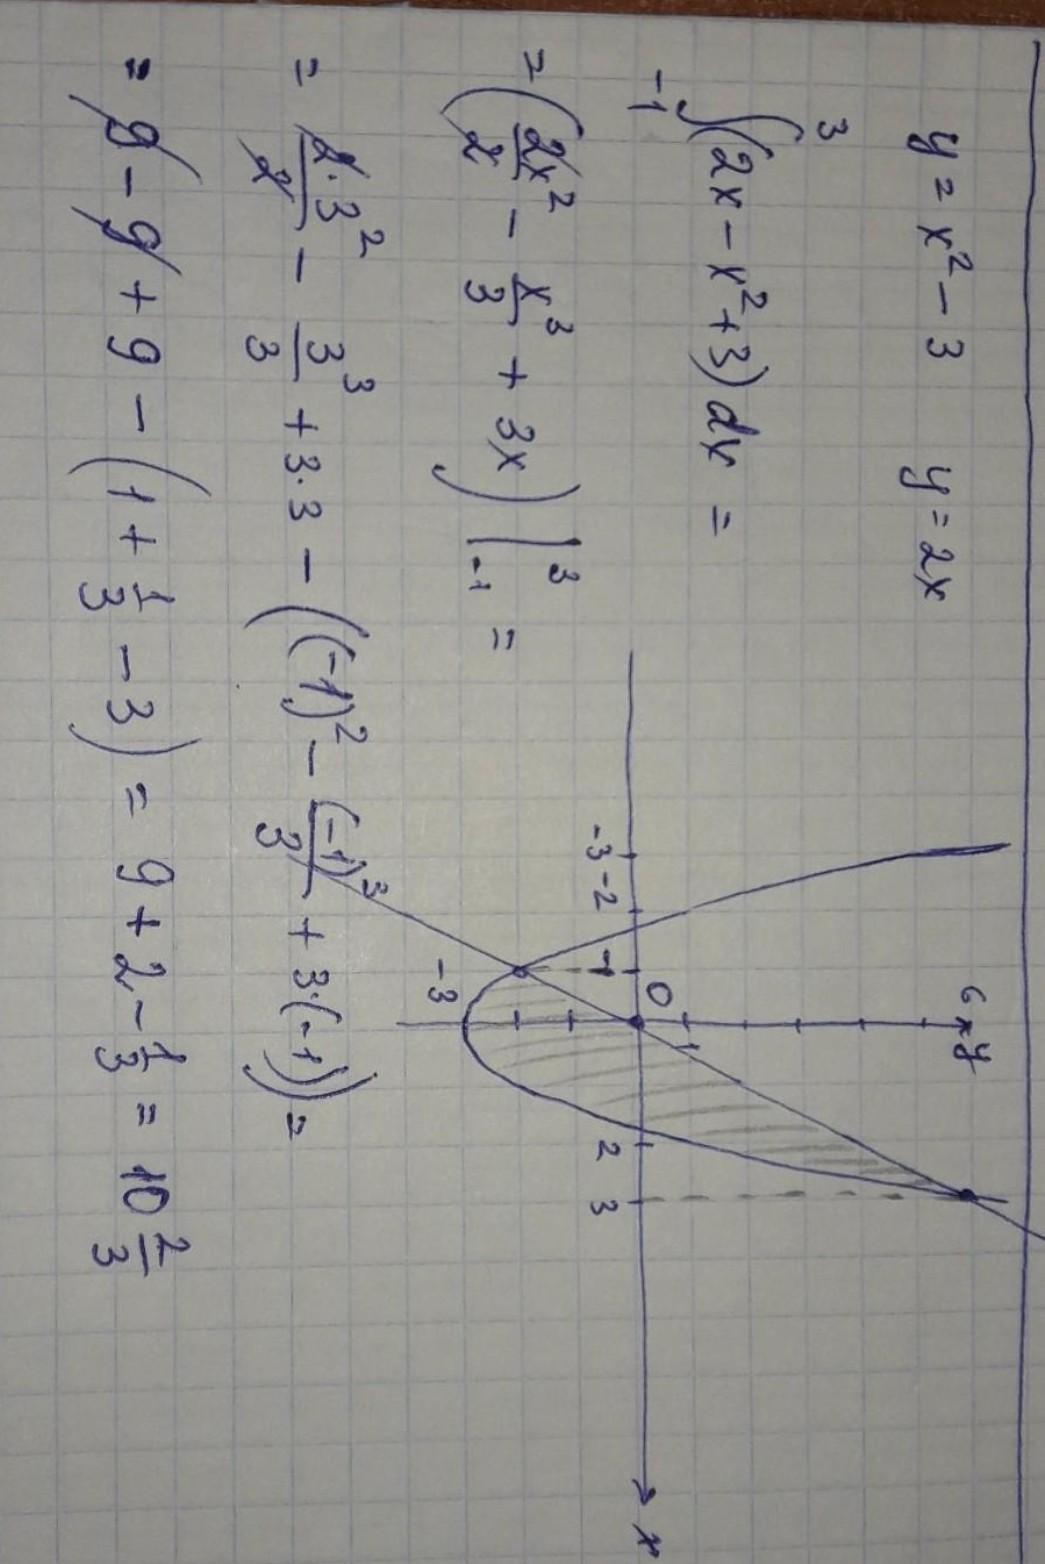 y = x² - 3   y = 2x
₋₁∫³(2x - x² + 3)dx =
= (2x²/2 - x³/3 + 3x)|³₋₁ =
= 2·3²/2 - 3³/3 + 3·3 - ((-1)² - (-1)³/3 + 3·(-1)) =
= 9 - 9 + 9 - (1 + 1/3 - 3) = 9 + 2 - 1/3 = 10 2/3
6 y
1
-3 -2 -1 0 2 3 x
-3